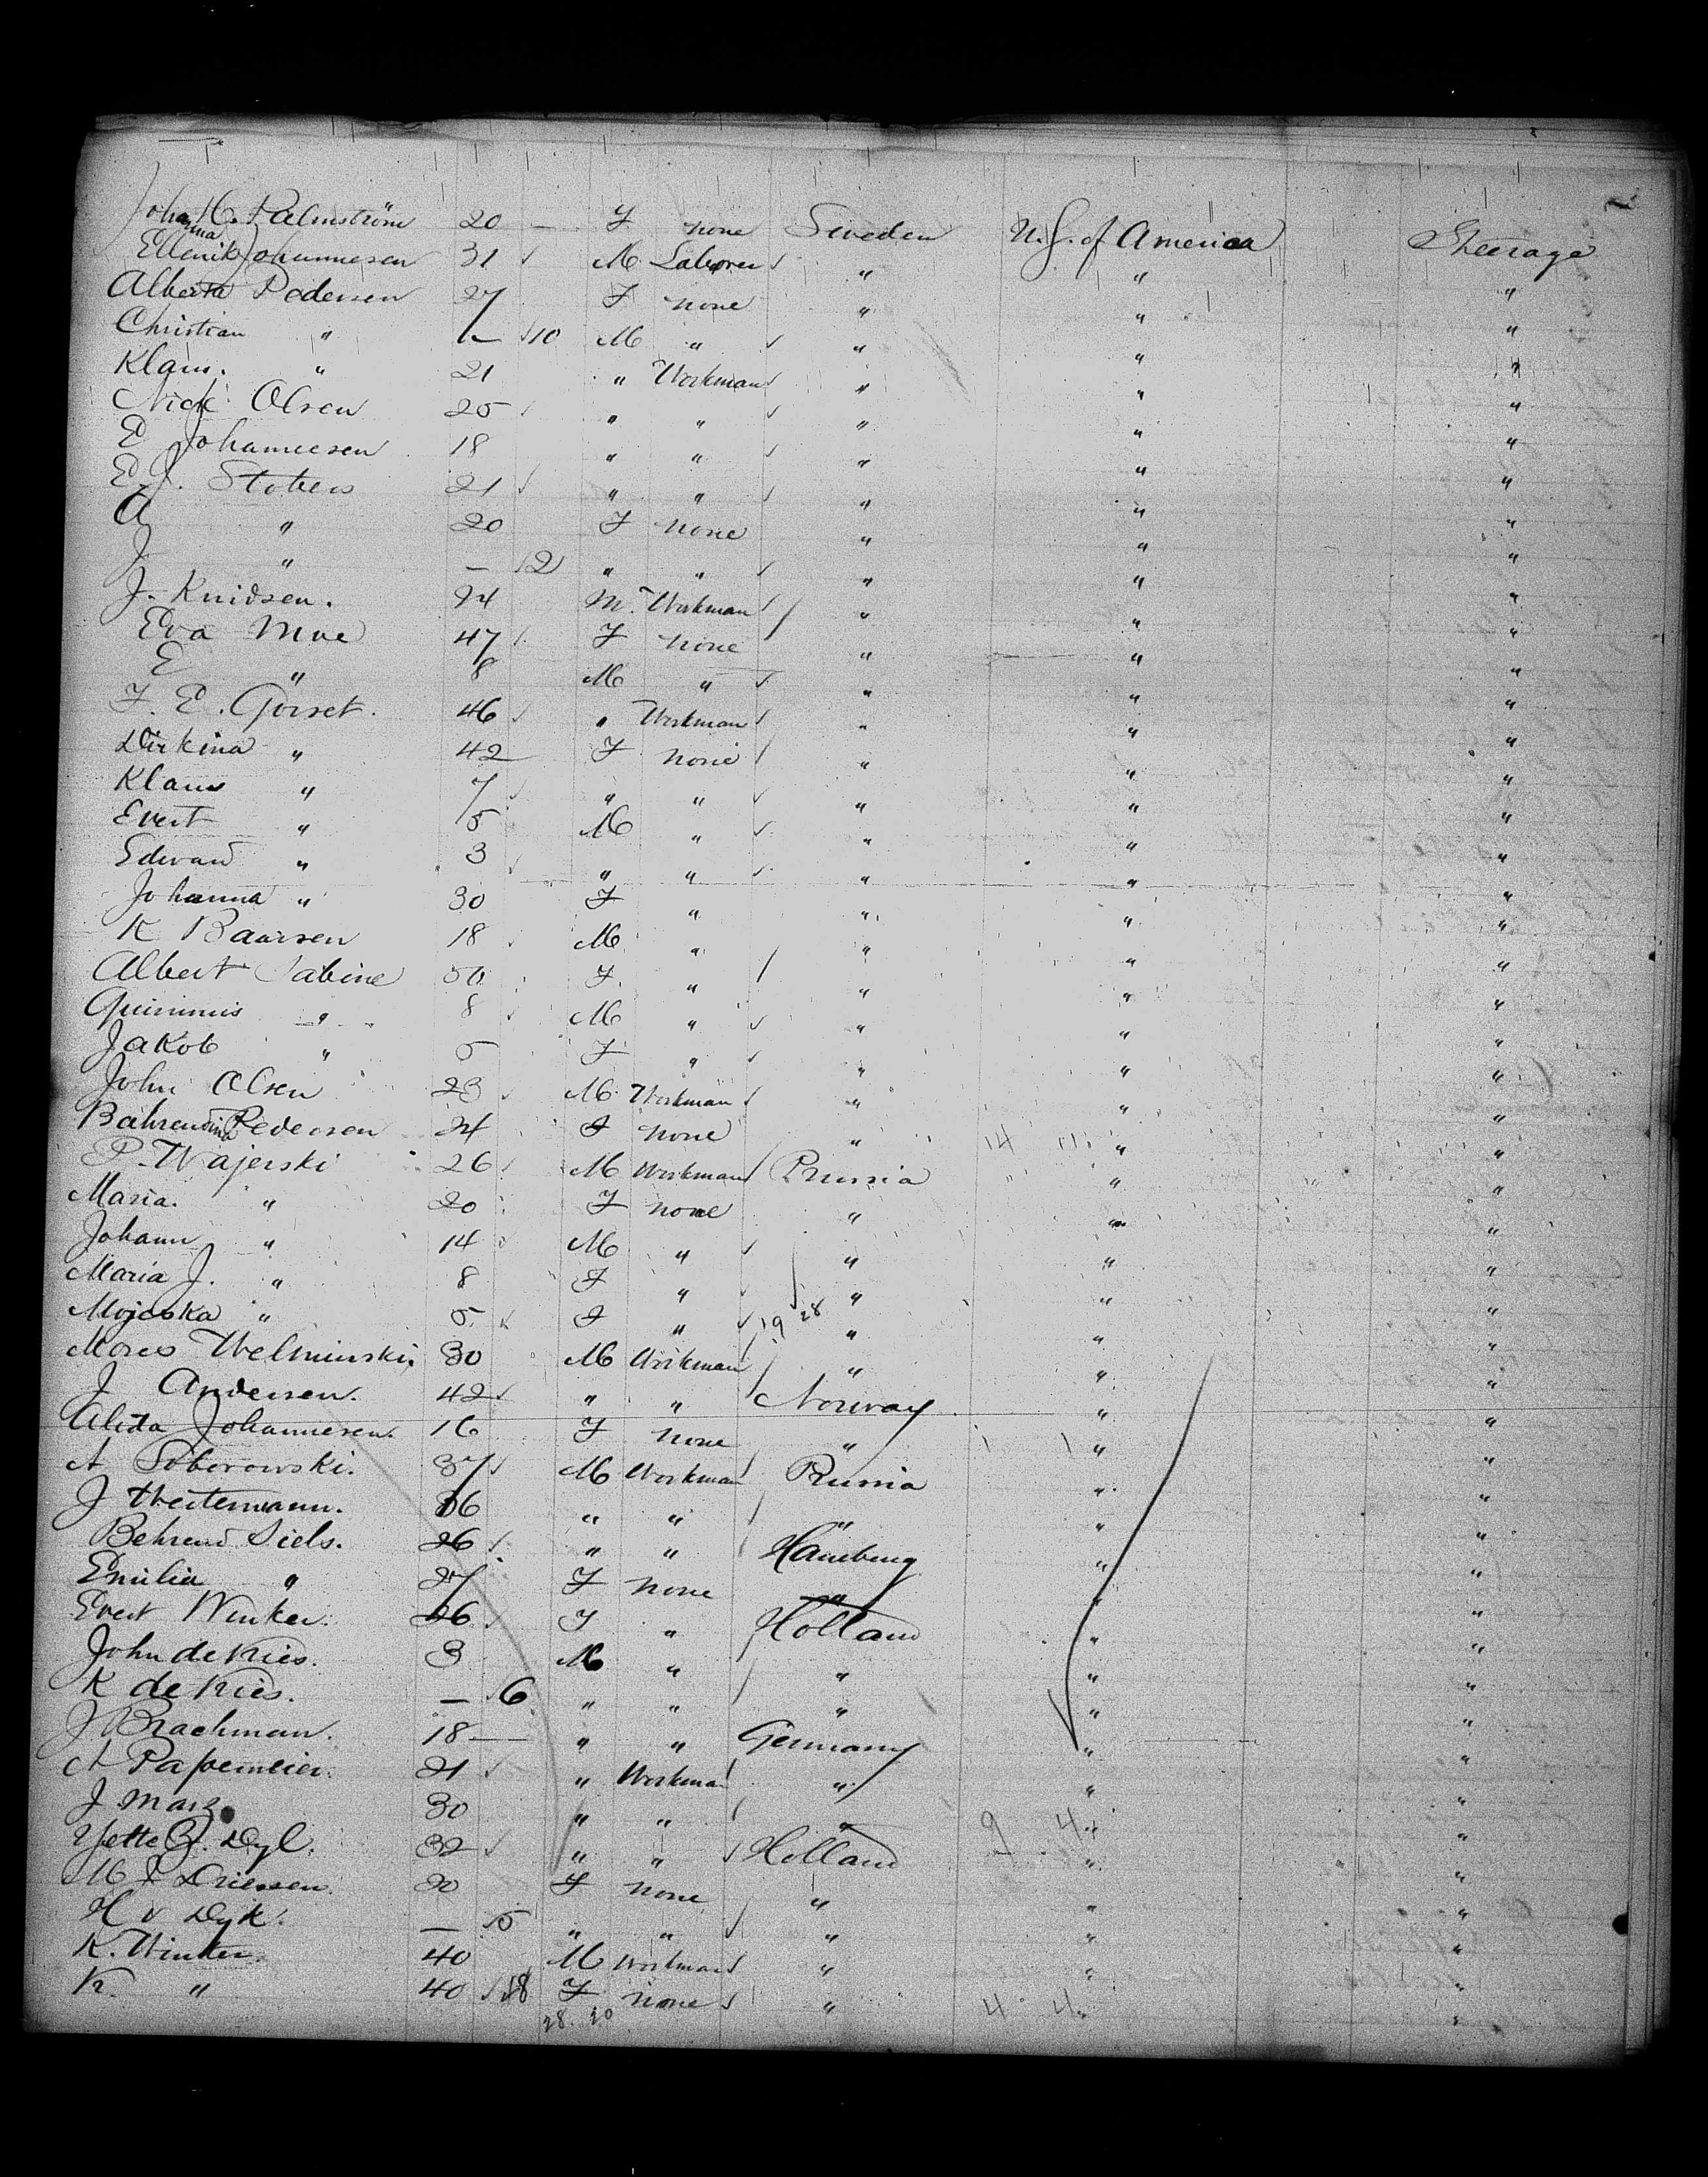 Johanna C. Palmström 20 — F none Sweden U.S. of America Steerage
Ellerik Johannesen 31 M Laborer " " "
Alberta Pedersen 27 F none " " "
Christian " 10 M " " " "
Klaus. " 21 " Workman " " "
Nick Olsen 25 " " " " "
E Johannesen 18 " " " " "
E. J. Stobers 21 " " " " "
A " 20 F none " " "
J " — 2 " " " " "
J. Knidsen. 24 M. Workman " " "
Eva Moe 47 F none " " "
E " 8 M " " " "
F. E. Gorset. 46 " Workman " " "
Dirkina " 42 F none " " "
Klaus " 7 " " " " "
Evert " 5 M " " " "
Edward " 3 " " " " "
Johanna " 30 F " " " "
K Baarsen 18 M " " " "
Albert Sabine 50 F. " " " "
" 8 M " " " "
Jakob " 5 F " " " "
John Olsen 23 M Workman " " "
Bahrendina Pedersen 24 F none " 14 11 " "
P. Wajerski 26 M Workman Prussia " "
Maria. " 20 F none " " "
Johann " 14 M " " " "
Maria J. " 8 F " " " "
Mojeska " 5 F " 19 28 " " "
Moses Welminski. 30 M Workman " " "
J Andersen. 42 " " Norway " "
Alida Johannesen. 16 F none " " "
A Soborowski. 37 M Workman Prussia " "
J Westermann. 36 " " " " "
Behrend Siels. 26 " " Hamburg " "
Emilia " 27 F none " " "
Evert Winker. 26 F " Holland " "
John de Vries. 3 M " " " "
K de Vries. — 6 " " " " "
J Brachman. 18 — " " Germany " "
A Papemeier. 21 " Workman " " "
J. Marz. 30 " " " 9 4 " "
Yette B. Dyl. 32 " " Holland " "
M J Driessen. 20 F none " " "
H v Dyk. — 5 " " " " "
K. Winter. 40 M Workman " " "
K. " 40 18 F none " 4 4 " "
28. 20